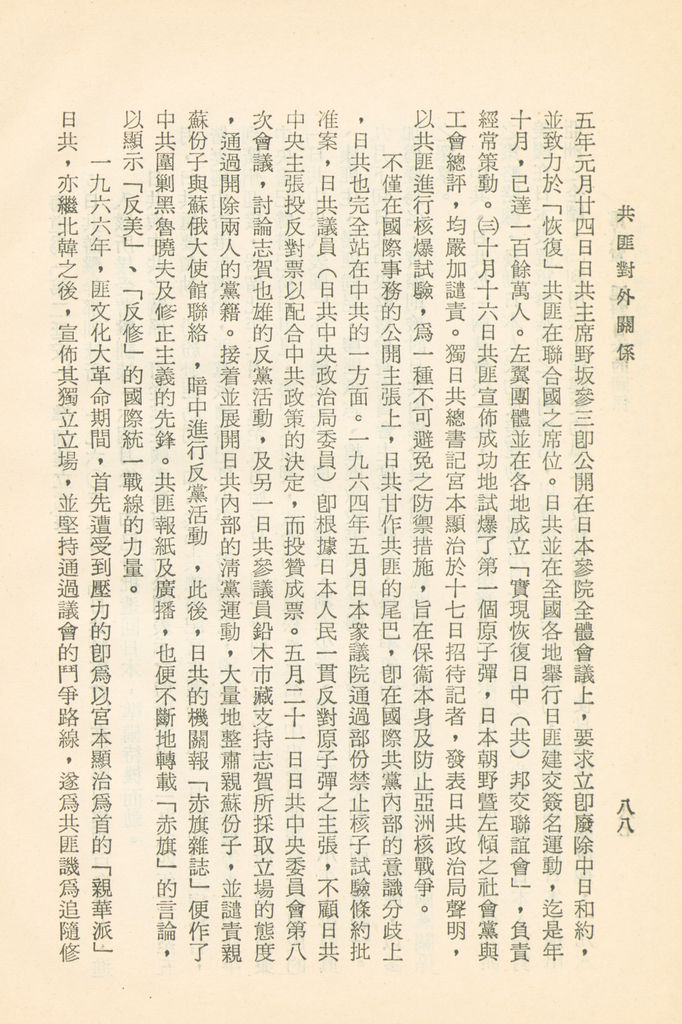 共匪對外關係
八八
五年元月廿四日日共主席野坂參三卽公開在日本參院全體會議上，要求立卽廢除中日和約，
並致力於「恢復」共匪在聯合國之席位。日共並在全國各地舉行日匪建交簽名運動，迄是年
十月，已達一百餘萬人。左翼團體並在各地成立「實現恢復日中（共）邦交聯誼會」，負責
經常策動。㈢十月十六日共匪宣佈成功地試爆了第一個原子彈，日本朝野暨左傾之社會黨與
工會總評，均嚴加譴責。獨日共總書記宮本顯治於十七日招待記者，發表日共政治局聲明，
以共匪進行核爆試驗，爲一種不可避免之防禦措施，旨在保衞本身及防止亞洲核戰爭。
不僅在國際事務的公開主張上，日共甘作共匪的尾巴，卽在國際共黨內部的意識分歧上
，日共也完全站在中共的一方面。一九六四年五月日本衆議院通過部份禁止核子試驗條約批
准案，日共議員（日共中央政治局委員）卽根據日本人民一貫反對原子彈之主張，不顧日共
中央主張投反對票以配合中共政策的決定，而投贊成票。五月二十一日日共中央委員會第八
次會議，討論志賀也雄的反黨活動，及另一日共參議員鉛木市藏支持志賀所採取立場的態度
，通過開除兩人的黨籍。接着並展開日共內部的淸黨運動，大量地整肅親蘇份子，並譴責親
蘇份子與蘇俄大使館聯絡，暗中進行反黨活動，此後，日共的機關報「赤旗雜誌」便作了
中共圍剿黑魯曉夫及修正主義的先鋒。共匪報紙及廣播，也便不斷地轉載「赤旗」的言論，
以顯示「反美」、「反修」的國際統一戰線的力量。
一九六六年，匪文化大革命期間，首先遭受到壓力的卽爲以宮本顯治爲首的「親華派」
日共，亦繼北韓之後，宣佈其獨立立場，並堅持通過議會的鬥爭路線，遂爲共匪譏爲追隨修